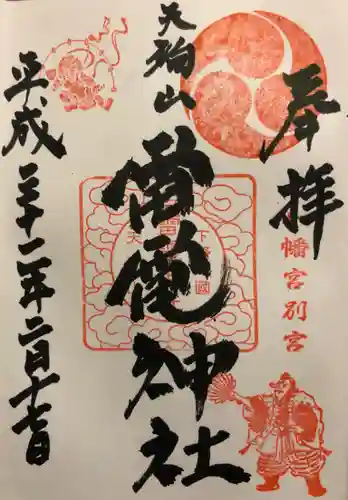 奉拝
幡宮別宮
天狗山
雷電神社
平成三十一年二月十七日